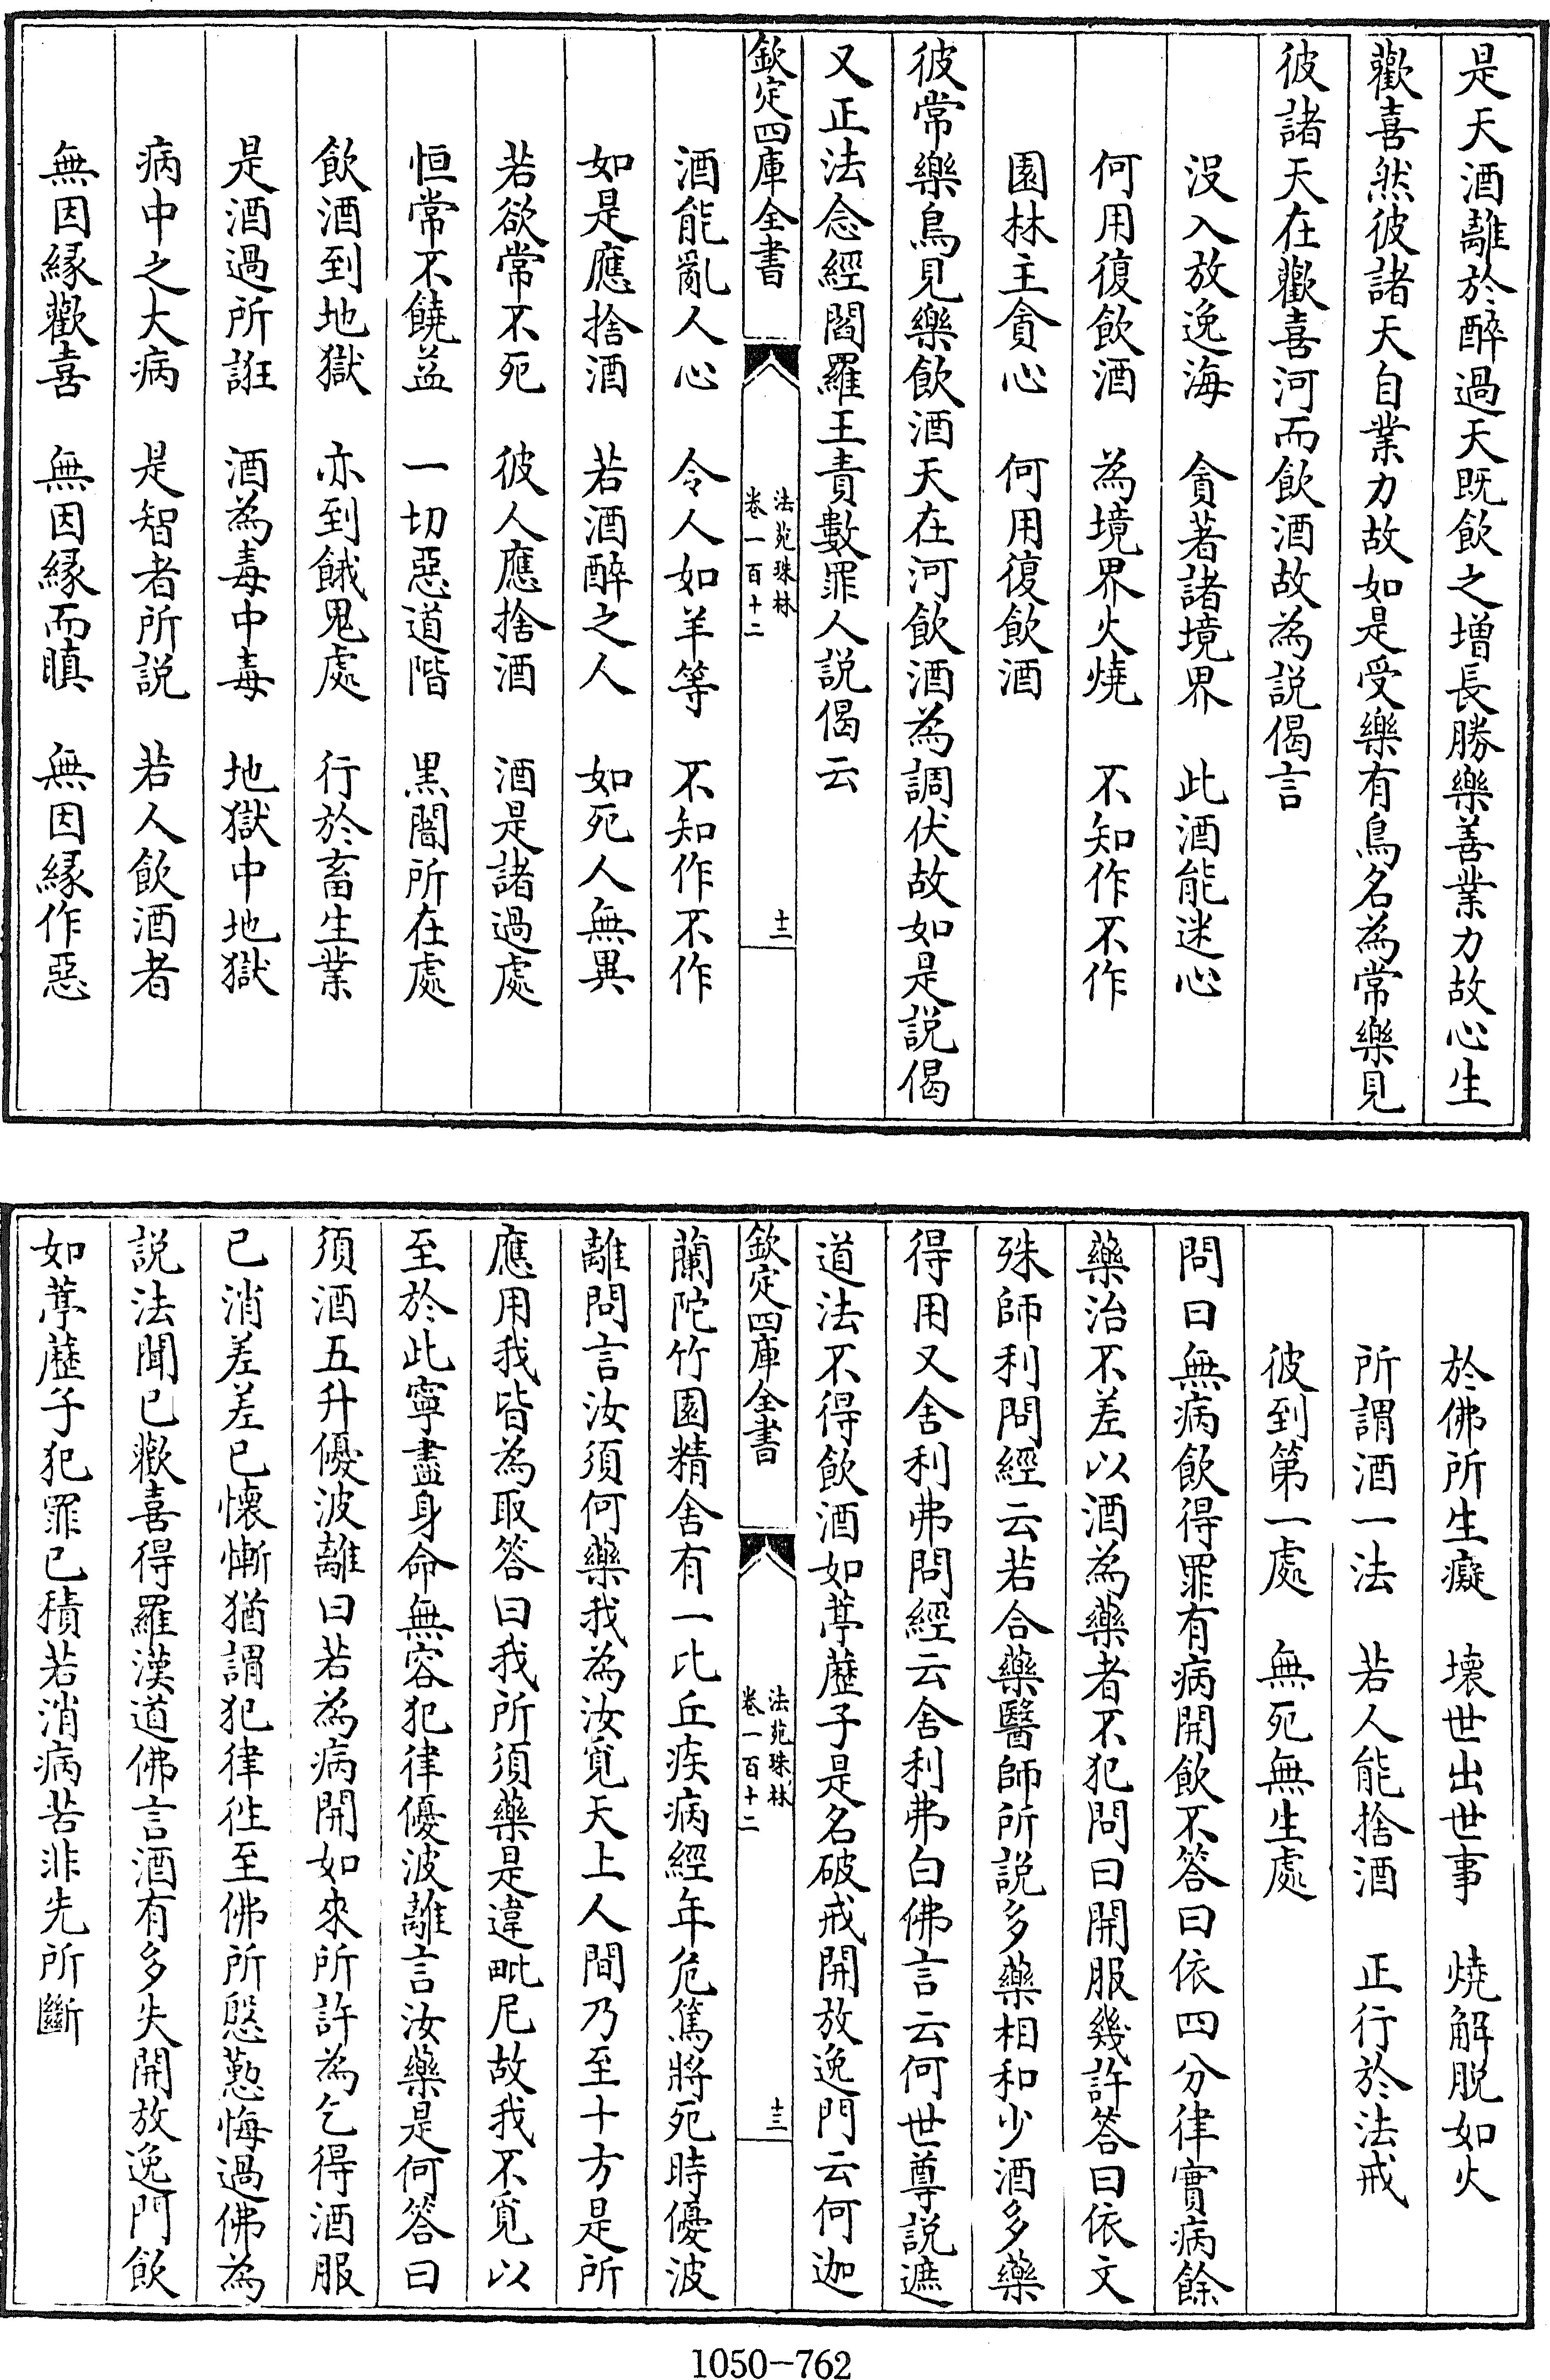 是天酒離於醉過天既飲之增長勝樂善業力故心生
歡喜然彼諸天自業力故如是受樂有鳥名為常樂見
彼諸天在歡喜河而飲酒故為説偈言
没入放逸海　貪著諸境界　此酒能迷心
何用復飲酒　為境界火燒　不知作不作
園林主貪心　何用復飲酒
彼常樂鳥見樂飲酒天在河飲酒為調伏故如是説偈
又正法念經閻羅王責數罪人説偈云
欽定四庫全書
法苑珠林
卷一百十二
十二
酒能亂人心　令人如羊等　不知作不作
如是應捨酒　若酒醉之人　如死人無異
若欲常不死　彼人應捨酒　酒是諸過處
恒常不饒益　一切惡道階　黒闇所在處
飲酒到地獄　亦到餓鬼處　行於畜生業
是酒過所誑　酒為毒中毒　地獄中地獄
病中之大病　是智者所説　若人飲酒者
無因緣歡喜　無因緣而瞋　無因緣作惡
於佛所生癡　壊世出世事　燒解脱如火
所謂酒一法　若人能捨酒　正行於法戒
彼到第一處　無死無生處
問曰無病飲得罪有病開飲不答曰依四分律實病餘
藥治不差以酒為藥者不犯問曰開服幾許答曰依文
殊師利問經云若合藥醫師所説多藥相和少酒多藥
得用又舍利弗問經云舍利弗白佛言云何世尊説遮
道法不得飲酒如葶藶子是名破戒開放逸門云何迦
欽定四庫全書
法苑珠林
卷一百十二
十三
蘭陀竹園精舍有一比丘疾病經年危篤將死時優波
離問言汝須何藥我為汝覓天上人間乃至十方是所
應用我皆為取答曰我所須藥是違毗尼故我不覓以
至於此寧盡身命無容犯律優波離言汝藥是何答曰
須酒五升優波離曰若為病開如來所許為乞得酒服
已消差差已懷慚猶謂犯律徃至佛所慇懃悔過佛為
説法聞已歡喜得羅漢道佛言酒有多失開放逸門飲
如葶藶子犯罪已積若消病苦非先所斷
1050-762